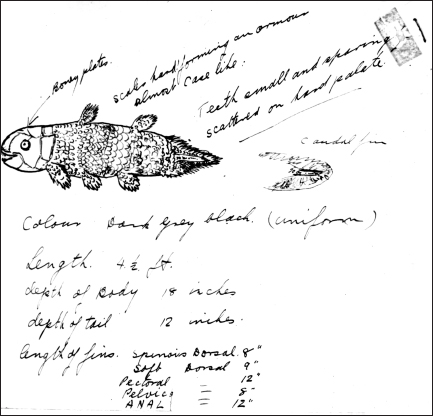 Boney plates.
scales hard forming an armour
almost case like.
Teeth small and sparing
scattered on hard palate.
1
Caudal fin
Colour Dark Grey black. (uniform)
Length. 4½ ft.
depth of Body 18 inches
depth of tail 12 inches.
length of fins. Spinous Dorsal. 8"
Soft Dorsal 9"
Pectoral = 12"
Pelvics = 8"
ANAL = 12"